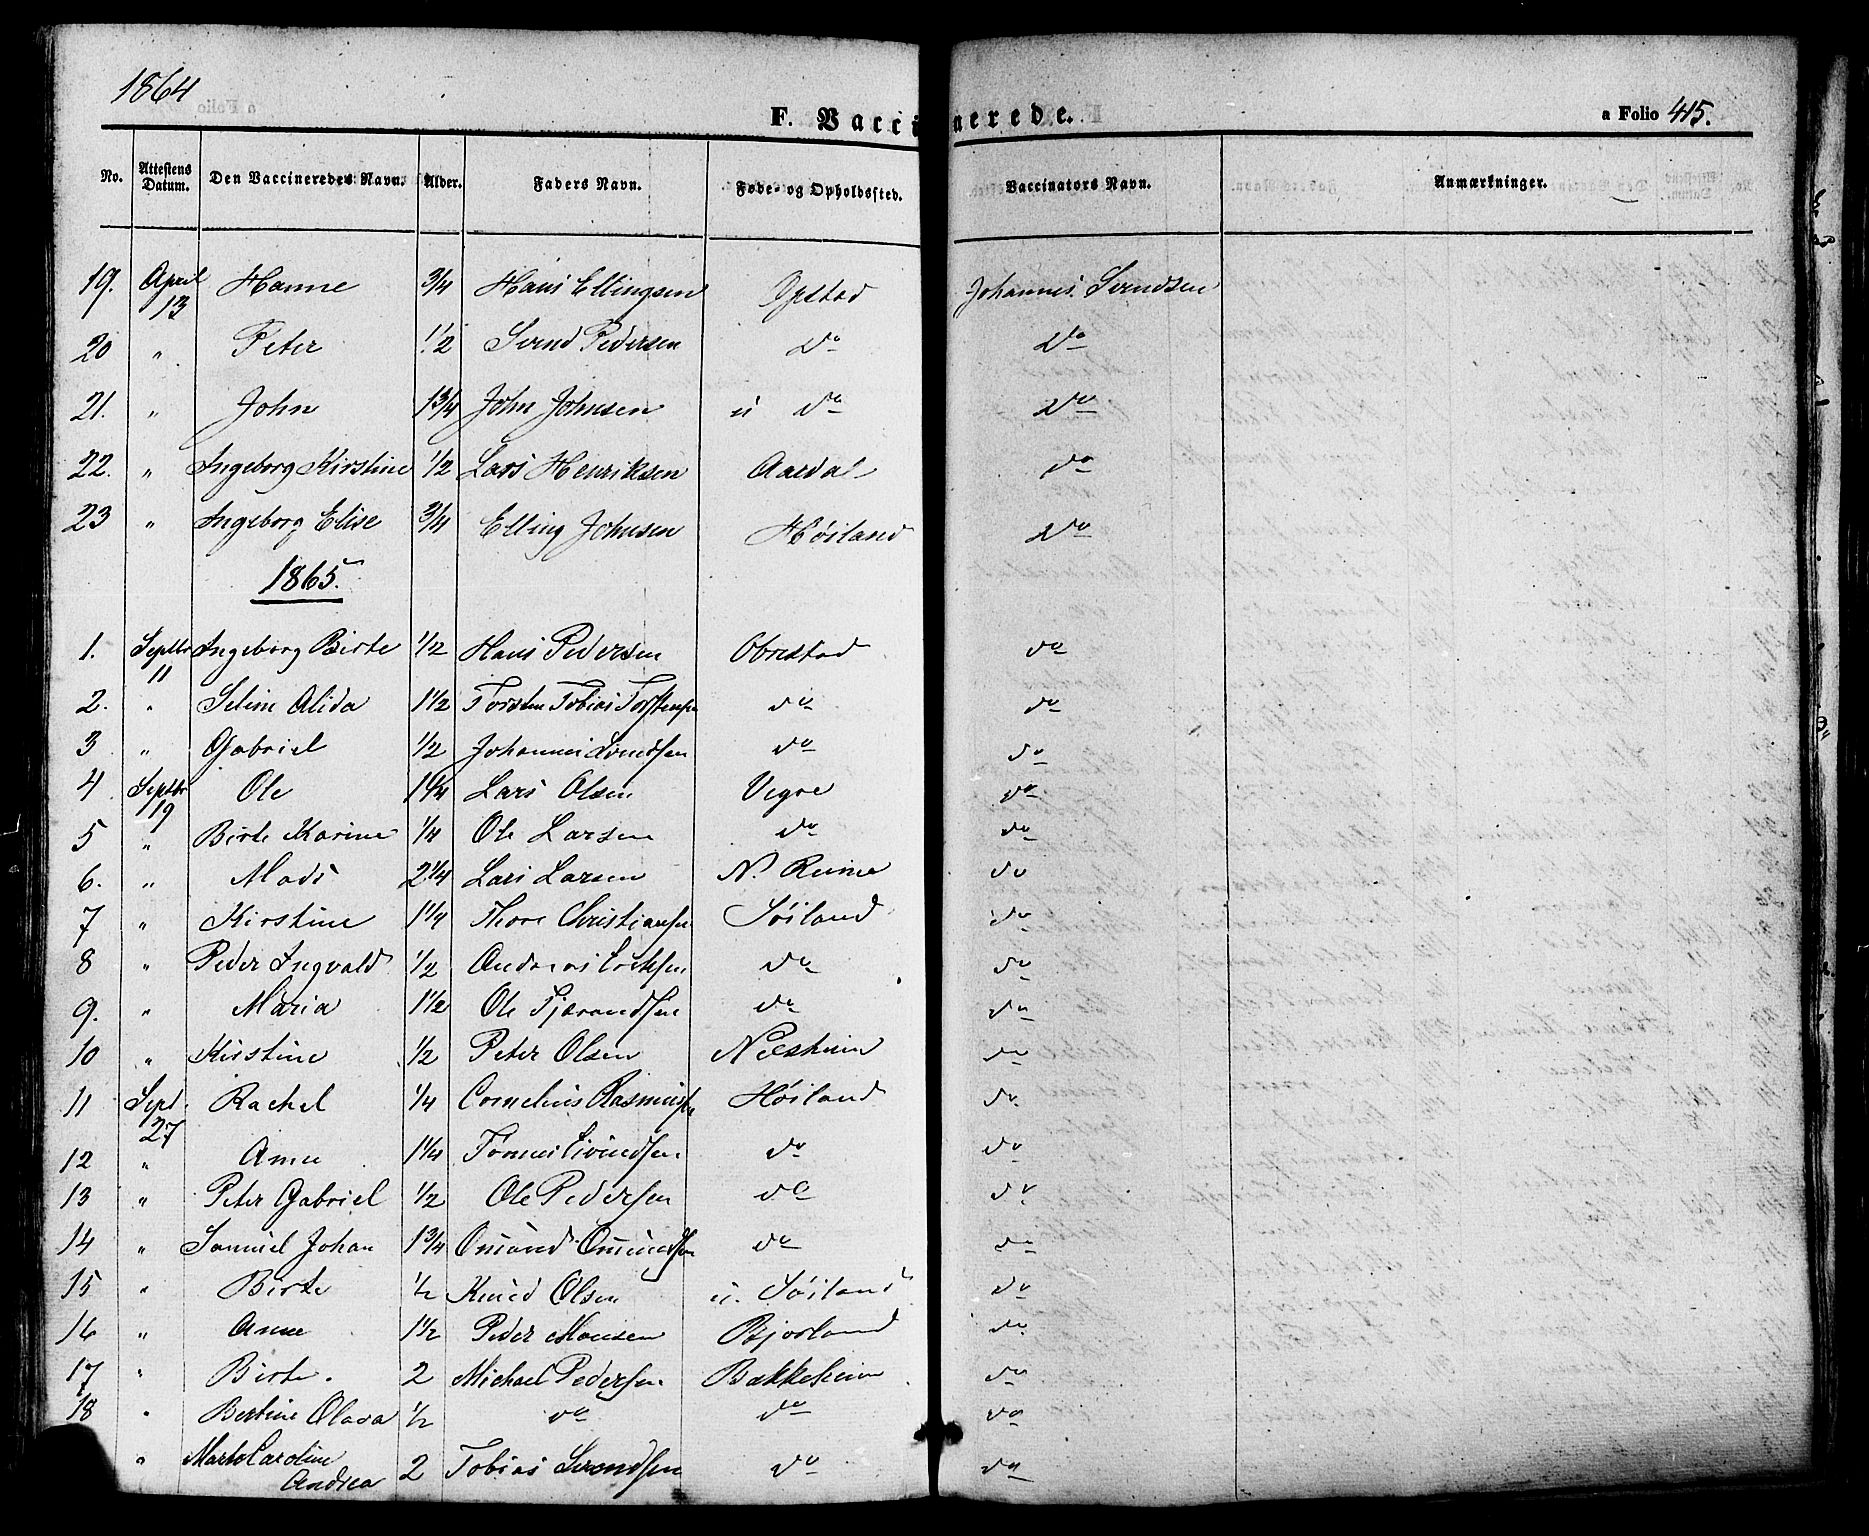 1864
F. Vaccinerede. a Folio 415.
No. Attestens Datum. Den Vaccineredes Navn. Alder. Faders Navn. Føde- og Opholdssted. Vaccinators Navn. Anmærkninger.
19. April 13 Hanne 3/4 Hans Ellingsen Opstad Johannes Svendsen
20 " Peter 1/2 Svend Pedersen do do
21. " John 1 3/4 John Johnsen u do do
22. " Ingeborg Kirstine 1/2 Lars Henriksen Aardal do
23 " Ingeborg Elise 3/4 Elling Johnsen Høiland do
1865.
1. Septbr 11 Ingeborg Birte 1/2 Hans Pedersen Obrestad do
2. " Seline Alida 1 1/2 Torsten Tobias Torstensen do do
3 " Gabriel 1/2 Johannes Svendsen do do
4 Septbr 19 Ole 1 1/4 Lars Olsen Vigre do
5 " Birte Karine 1/4 Ole Larsen do do
6. " Mads 2 1/4 Lars Larsen N. Reime do
7 " Kirstine 1 1/4 Thore Christiansen Søiland do
8 " Peder Ingvald 1/2 Andreas do do
9. " Maria 1 1/2 Ole Tjerandsen do do
10 " Kirstine 1/2 Peter Olsen Næsheim do
11 Sept. 27 Rachel 1/4 Cornelius Rasmussen Høiland do
12 " Anne 1 1/4 Tønnes Eivindsen do do
13 " Peter Gabriel 1/2 Ole Pedersen do do
14 " Samuel Johan 1 3/4 Omund Omundsen do do
15 " Birte 1/2 Knud Olsen u. Søiland do
16 " Anne 1 1/2 Peder Monsen Bjorland do
17 " Birte. 2 Michael Pedersen Bækkeheien do
18 " Bertine Olava 1/2 do do do
" Marta Caroline Andrea 2 Tobias Svendsen do do